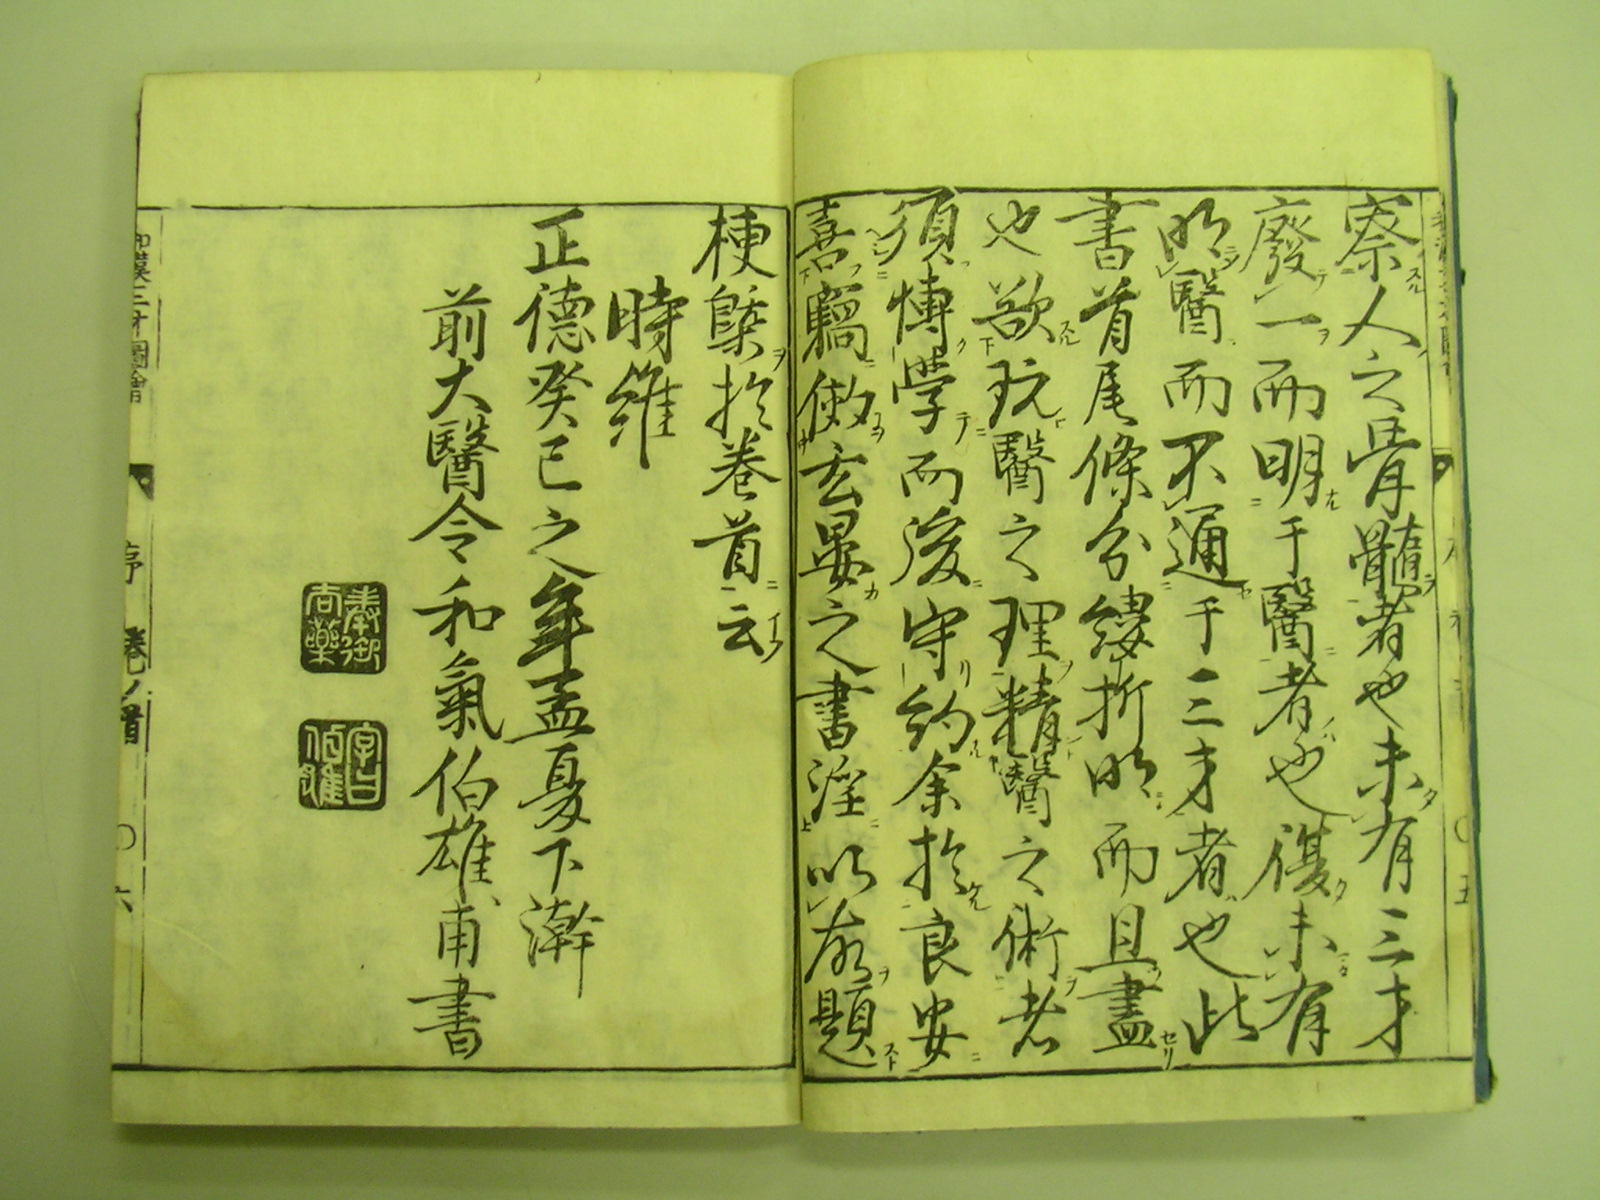 察人之骨髓者也未有三才
廢一而明于醫者也復未有
明醫而不通于三才者也此
書首尾條分縷折明而且盡
也欲玩醫之理精醫之術者
須博學而後守約余於良安
喜竊倣玄晏之書淫以故題
梗槩於巻首云
時維
正德癸巳之年孟夏下澣
前大醫令和氣伯雄甫書
和漢三才圖會
序
巻ノ首
〇六